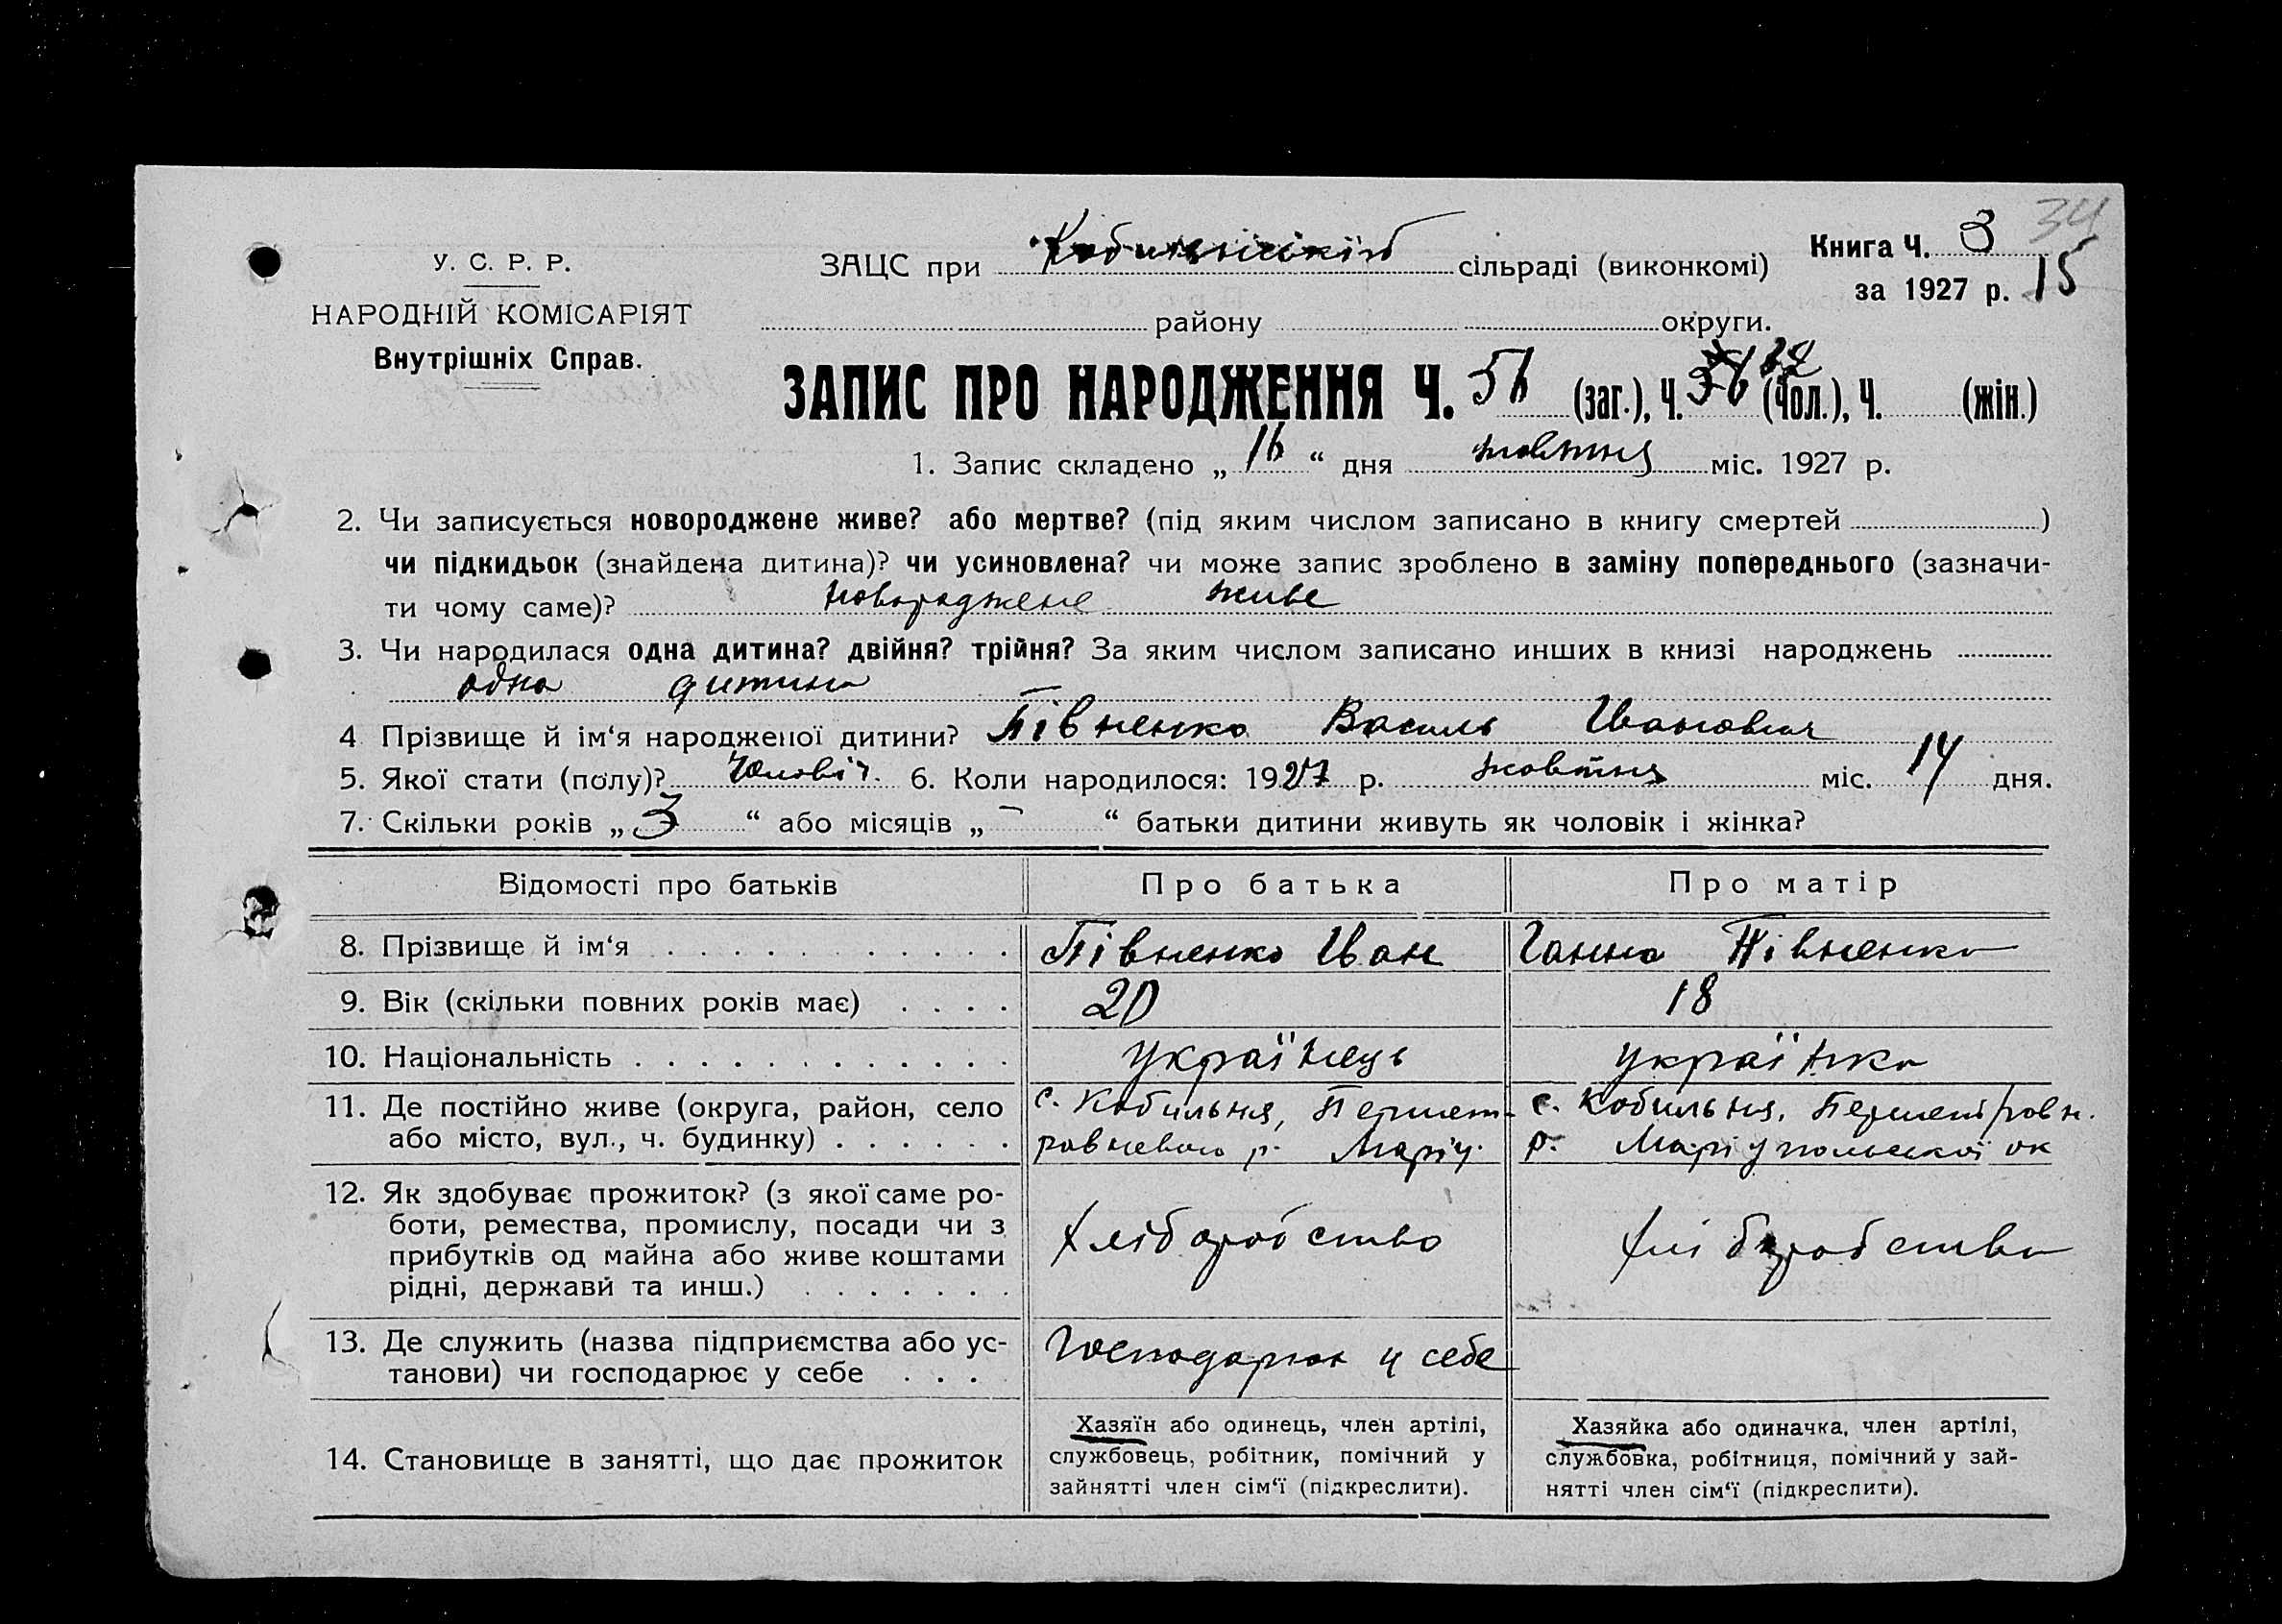 34
У. С. Р. Р.
НАРОДНІЙ КОМІСАРІЯТ
Внутрішніх Справ.
ЗАЦС при сільраді (виконкомі)
Книга Ч. 3
за 1927 р. 15
району округи.
ЗАПИС ПРО НАРОДЖЕННЯ Ч. 56 (заг.), Ч. (чол.), Ч. (жін.)
1. Запис складено „ 16 “ дня жовтня міс. 1927 р.
2. Чи записується новороджене живе? або мертве? (під яким числом записано в книгу смертей )
чи підкидьок (знайдена дитина)? чи усиновлена? чи може запис зроблено в заміну попереднього (зазначи-
ти чому саме)? новороджене живе
3. Чи народилася одна дитина? двійня? трійня? За яким числом записано инших в книзі народжень
одна дитина
4 Прізвище й ім‘я народженої дитини? Півненко Василь Іванович
5. Якої стати (полу)? чоловіч. 6. Коли народилося: 1927 р. жовтня міс. 14 дня.
7. Скільки років „ 3 “ або місяців „ – “ батьки дитини живуть як чоловік і жінка?
Відомості про батьків Про батька Про матір
8. Прізвище й ім‘я Півненко Іван Ганна Півненко
9. Вік (скільки повних років має) 20 18
10. Національність Українець Українка
11. Де постійно живе (округа, район, село
або місто, вул., ч. будинку)
с. Кобильня,
р. Маріу.
с. Кобильня,
р. Маріупольської ок
12. Як здобуває прожиток? (з якої саме ро-
боти, ремества, промислу, посади чи з
прибутків од майна або живе коштами
рідні, держави та инш.)
хліборобство
хліборобство
13. Де служить (назва підприємства або ус-
танови) чи господарює у себе
Господарює у себе
14. Становище в занятті, що дає прожиток
Хазяїн або одинець, член артілі,
службовець, робітник, помічний у
зайнятті член сім‘ї (підкреслити).
Хазяйка або одиначка, член артілі,
службовка, робітниця, помічний у зай-
нятті член сім‘ї (підкреслити).